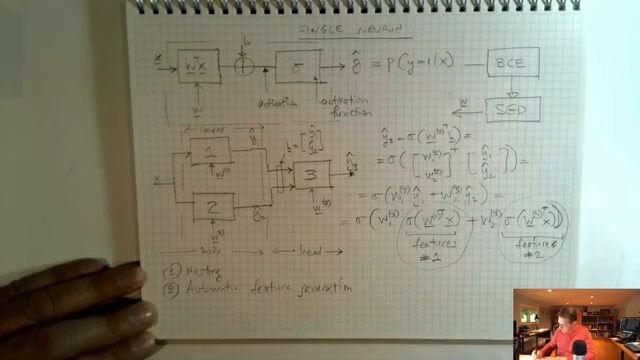 SINGLE NEURON
x
w^T x
b
σ
ŷ = P(y=1|x)
BCE
w
activation
activation function
w
SGD
layer
ŷ1
h = [ŷ1 ŷ2]
1
w^(1)
x
3
ŷ3
w^(3)
2
ŷ2
head
ŷ3 = σ(w^(3)T h) =
= σ([w1^(3) w2^(3)]^T [ŷ1 ŷ2]) =
= σ(w1^(3) ŷ1 + w2^(3) ŷ2) =
= σ(w1^(3) σ(w^(1)T x) + w2^(3) σ(w^(2)T x))
features #2
features #2
① Nesting
② Automatic feature generation